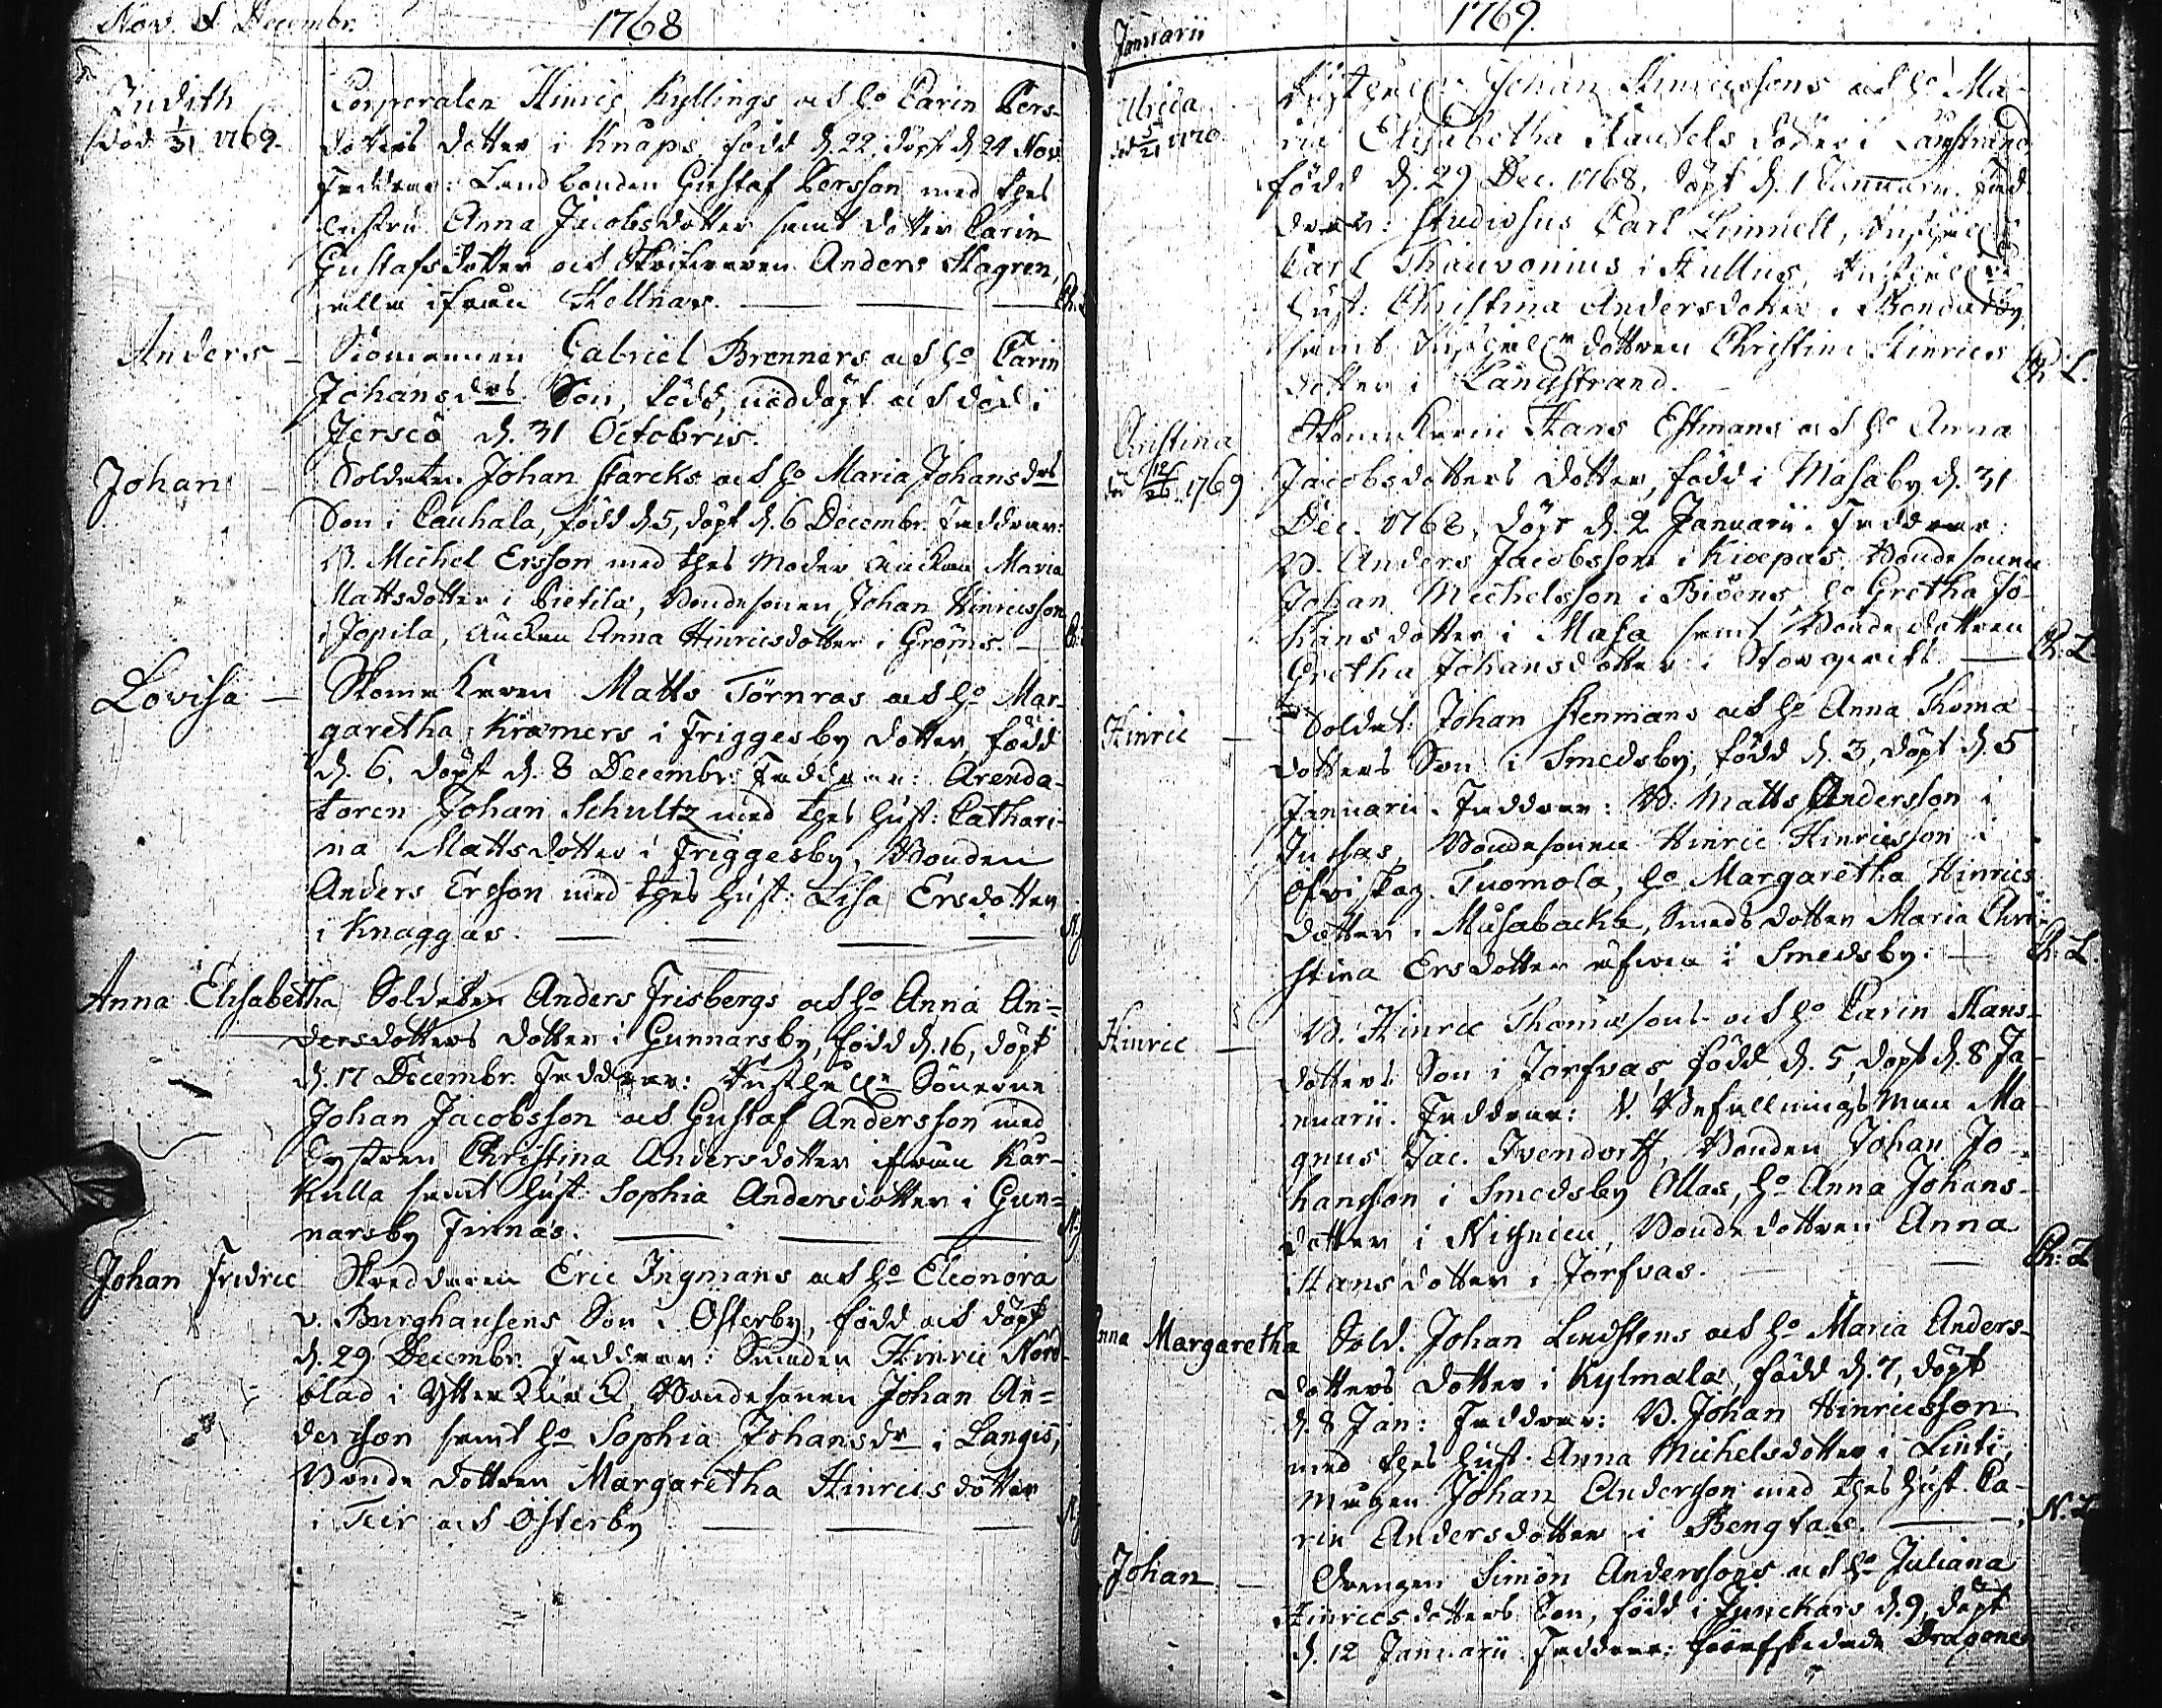 Nov. & Decembr. 1768
Judith Corporalen Hinric Kyllings och ho Carin Pers-
död 1/31 1769. dotters dotter i Knaps född d. 22, döpt d. 24 Nov.
Faddrar: Landbonden Gustaf Persson med thes
hustru Anna Jacobsdotter samt dotter Carin
Gustafsdotter och Anders Hagren,
alle ifrån
Anders – Gabriel Brenners och ho Carin
Johansdrs Son, född, nöddöpt och död i
Jerseö d. 31 Octobris.
Johan – Soldaten Johan Starcks och ho Maria Johansdrs
Son i Cauhala, född d. 5, döpt d. 6 Decembr. Faddrar:
B. Michel Ersson med thes Moder Änckan Maria
Mattsdotter i Pietila, Bondesonen Johan Hinricsson
i Jopila, Änckan Anna Hinricsdotter i Gröms. –
Lovisa – Skomakaren Matts Törnros och ho Mar-
garetha Kræmers i Friggesby dotter, född
d. 6, döpt d. 8 Decembr. Faddrar: Arenda-
toren Johan Schultz med thes hust: Cathari-
na Mattsdotter i Friggesby, Bonden
Anders Ersson med thes hust: Lisa Ersdotter
i Knaggas.
Anna Elisabetha Soldaten Anders Frisbergs och ho Anna An-
dersdotters dotter i Gunnarsby, född d. 16, döpt
d. 17 Decembr. Faddrar: Sönerne
Johan Jacobsson och Gustaf Andersson med
Systren Christina Andersdotter ifrån Kar-
kulla samt hust: Sophia Andersdotter i Gun-
narsby Finnas.
Johan Fredric Skreddaren Eric Ingmans och ho Eleonora
v. Burghausens Son i Österby, född och döpt
d. 29 Decembr. Faddrar: Smeden Hinric Nord-
blad i Ytterkurck, Bondesonen Johan An-
dersson samt ho Sophia Johansdr i Langis,
Bonde dottren Margaretha Hinricsdotter
i Teir och Österby
Januarii 1769.
Ulrica Johan Hinricssons och ho Ma-
död 5/21 1770. ria Elisabetha dotter i Långstrand
född d. 29 Dec. 1768, döpt d. 1 Januarii. Fad-
drar: Studiosus Carl Limnell,
Carl Thauvonius i Kullus,
hust: Christina Andersdotter i
samt dottren Christina Hinrics
dotter i Långstrand. Ch: L.
Christina Hans Estmans och ho Anna
död 12/26 1769 Jacobsdotters dotter, född i Masaby d. 31
Dec. 1768, döpt d. 2 Januarii. Faddrar:
B. Anders Jacobsson i Bondesonen
Johan Michelsson i Biöens, ho Gretha Jo-
hansdotter i Masa samt Bonde dottren
Gretha Johansdotter i — Ch: L
Hinric – Soldat: Johan Stenmans och ho Anna Thomæ-
dotters Son i Smedsby, född d. 3, döpt d. 5
Januarii. Faddrar: B. Matts Andersson i
Jussas, Bondesonen Hinric Hinricsson i
Tuomola, ho Margaretha Hinrics-
dotter i Musabacka, Smeds dotter Maria Chri-
stina Ersdotter i Smedsby. — Ch: L.
Hinric – B. Hinric Thomæsons och ho Carin Hans-
dotters Son i Jorfvas, född d. 5, döpt d. 8 Ja-
nuarii. Faddrar: V. Befallningsman Ma-
gnus Jac. Bonden Johan Jo-
hansson i Smedsby Ollas, ho Anna Johans-
dotter i Bonde dottren Anna
Hansdotter i Jorfvas. — Ch: L
nna Margaretha Sold. Johan Lindstens och ho Maria Anders-
dotters dotter i Kylmala, född d. 7, döpt
d. 8 Jan: Faddrar: B. Johan Hinricsson
med thes hust: Anna Michelsdotter i Linti,
Mågen Johan Andersson med thes hust. Ca-
rin Andersdotter i Bengtas. — N. L
Johan – Drengen Simon Anderssons och ho Juliana
Hinricsdotters Son, född i Junckars d. 9, döpt
d. 12 Januarii. Faddrar: Dragonen